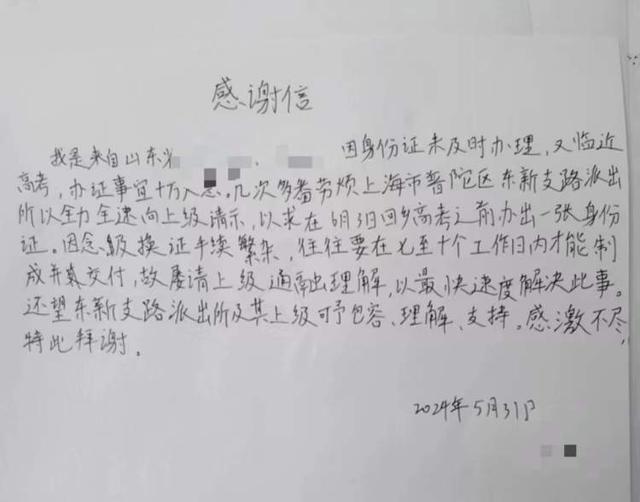 感谢信
我是来自山东 因身份证未及时办理，又临近
高考，办证事宜十万入急。几次多番劳烦上海市普陀区东新支路派出
所以全力全速向上级请示，以求在6月3日回乡高考之前办出一张身份
证。因念级换证手续繁杂，往往要在七至十个工作日内才能制
成并真交付，故屡请上级通融理解，以最快速度解决此事。
还望东新支路派出所及其上级可予包容、理解、支持。感激不尽，
特此拜谢。
2024年5月31日